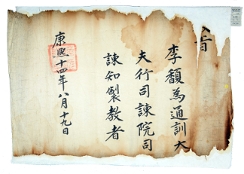 旨
李馥為通訓大
夫行司諫院司
諫知製教者
康熙十四年八月十九日